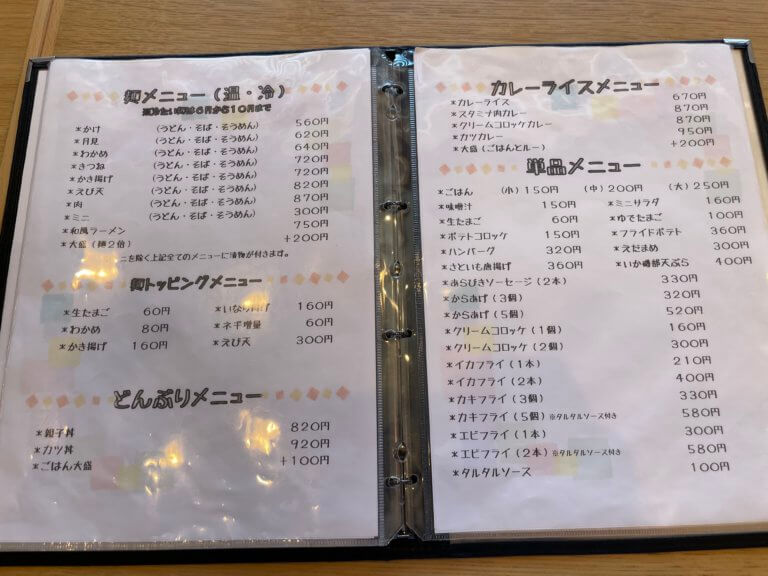 麺メニュー(温・冷)
※冷たい麺は6月から10月まで
*かけ (うどん・そば・そうめん) 560円
*月見 (うどん・そば・そうめん) 620円
*わかめ (うどん・そば・そうめん) 640円
*きつね (うどん・そば・そうめん) 720円
*かき揚げ (うどん・そば・そうめん) 720円
*えび天 (うどん・そば・そうめん) 820円
*肉 (うどん・そば・そうめん) 870円
*ミニ (うどん・そば・そうめん) 300円
*和風ラーメン 750円
*大盛(麺2倍) +200円
ニを除く上記全てのメニューに漬物が付きます。
麺トッピングメニュー
*生たまご 60円 *いなり揚げ 160円
*わかめ 80円 *ネギ増量 60円
*かき揚げ 160円 *えび天 300円
どんぶりメニュー
*親子丼 820円
*カツ丼 920円
*ごはん大盛 +100円
カレーライスメニュー
*カレーライス 670円
*スタミナ肉カレー 870円
*クリームコロッケカレー 870円
*カツカレー 950円
*大盛(ごはんとルー) +200円
単品メニュー
*ごはん (小)150円 (中)200円 (大)250円
*味噌汁 150円 *ミニサラダ 160円
*生たまご 60円 *ゆでたまご 100円
*ポテトコロッケ 150円 *フライドポテト 360円
*ハンバーグ 320円 *えだまめ 300円
*さといも唐揚げ 360円 *いか磯部天ぷら 400円
*あらびきソーセージ(2本) 330円
*からあげ(3個) 320円
*からあげ(5個) 520円
*クリームコロッケ(1個) 160円
*クリームコロッケ(2個) 300円
*イカフライ(1本) 210円
*イカフライ(2本) 400円
*カキフライ(3個) 330円
*カキフライ(5個)※タルタルソース付き 580円
*エビフライ(1本) 300円
*エビフライ(2本)※タルタルソース付き 580円
*タルタルソース 100円